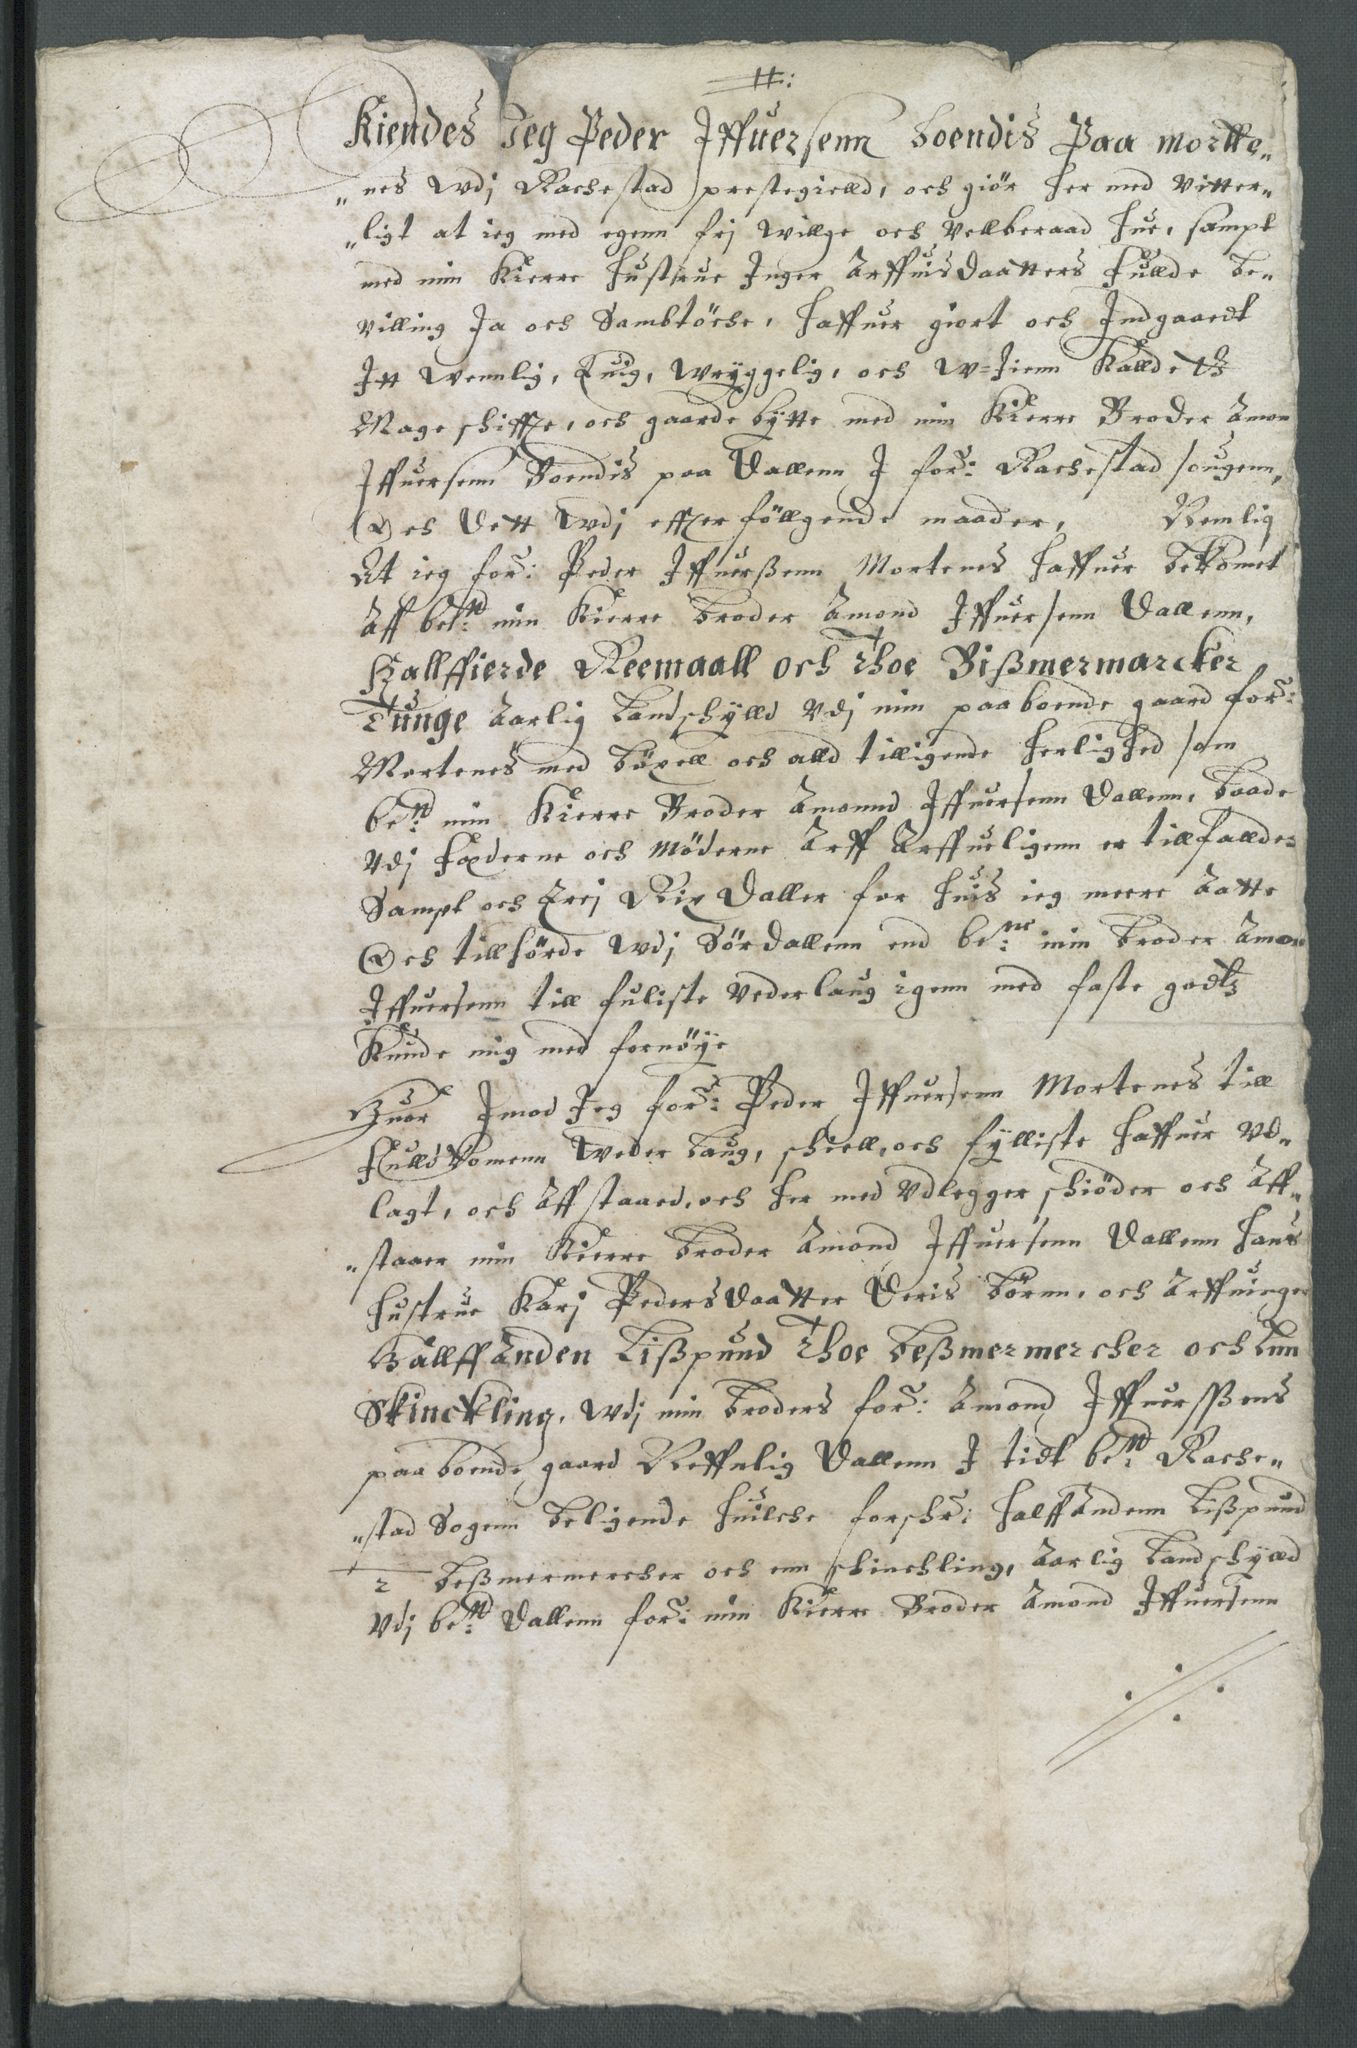 H:
Kiendes Jeg Peder Iffuersenn boendis Paa mortte„
„nes Wdj Rachestad prestegielld, och giör her med Vitter„
„ligt at ieg med egenn frj Willge och Vellberaad hue, sampt
med min Kierre hustrue Inger Arffuisdaatters fullde be„
villing Ja och Sambtöche, haffuer giort och Indgaaedt
Itt Wennlig, Euig, Wryggelig, och W=Jienn Kalldeth
Mageschiffte, och gaarde bytte med min Kierre Broder Amon
Iffuersenn Boendis paa Dallenn I for: Rachestad sougenn,
Och dett Wdj effter föllgende maader, Nemlig
At ieg for: Peder Iffuerßenn Mortenes haffuer bekomet
Aff be:nd min Kierre broder Amond Iffuersenn Dallenn,
Hallffierde Reemaall och Thoe Bißmermarcker
Tunge Aarlig Landschylld Vdj min paaboende gaard for:
Mortenes med böxell och alld tilligende herlighed som
be:nd min Kierre Broder Amonnd Iffuersenn Dallenn, baade
Vdj Fæderne och Möderne Arff Arffueligenn er tillfallde„
Sampt och Trej Rix Daller for huis ieg meere Aatte
Och tillhörde Wdj Sördallenn end be:ne min broder Amon
Iffuersenn till fuliste Vederlaug igenn med faste godtz
Kunde mig med fornöye
Huor Imod Jeg for: Peder Iffuersenn Mortenes till
Fulldkomenn Weder Laug, schiell, och fylliste haffuer Vd„
lagt, och Affstaaed, och her med Vdlegger schiöder och Aff„
„staaer min Kierre broder Amond Iffuersenn Dallenn hans
hustrue Karj Pedersdaatter deris börnn, och Arffuinger
Hallffanden Lißpund Thoe beßmermercher och Enn
Skinckling, Wdj min broders for: Amond Iffuerssens
paaboende gaard Neffnlig Dallenn I tidt be:nd Rache„
„stad Sogenn beligende huilche forschr: halffandenn Lißpund
2 beßmermercher och enn schinchling, Aarlig Landschyld
Vdj be:nd Dallenn for: min Kierre Broder Amond Iffuersenn